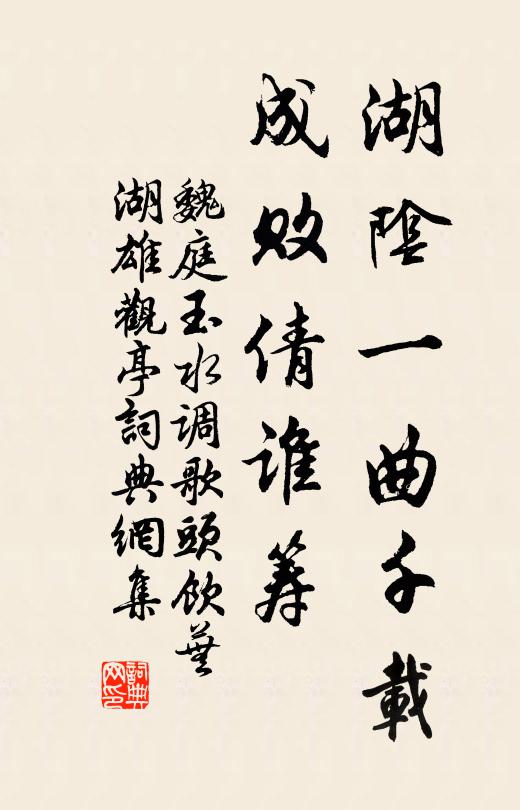 湖陰一曲千載
成敗倩誰筭
魏庭玉水调歌頭飲蕪
湖雄觀亭詞典網集
詞典
网印